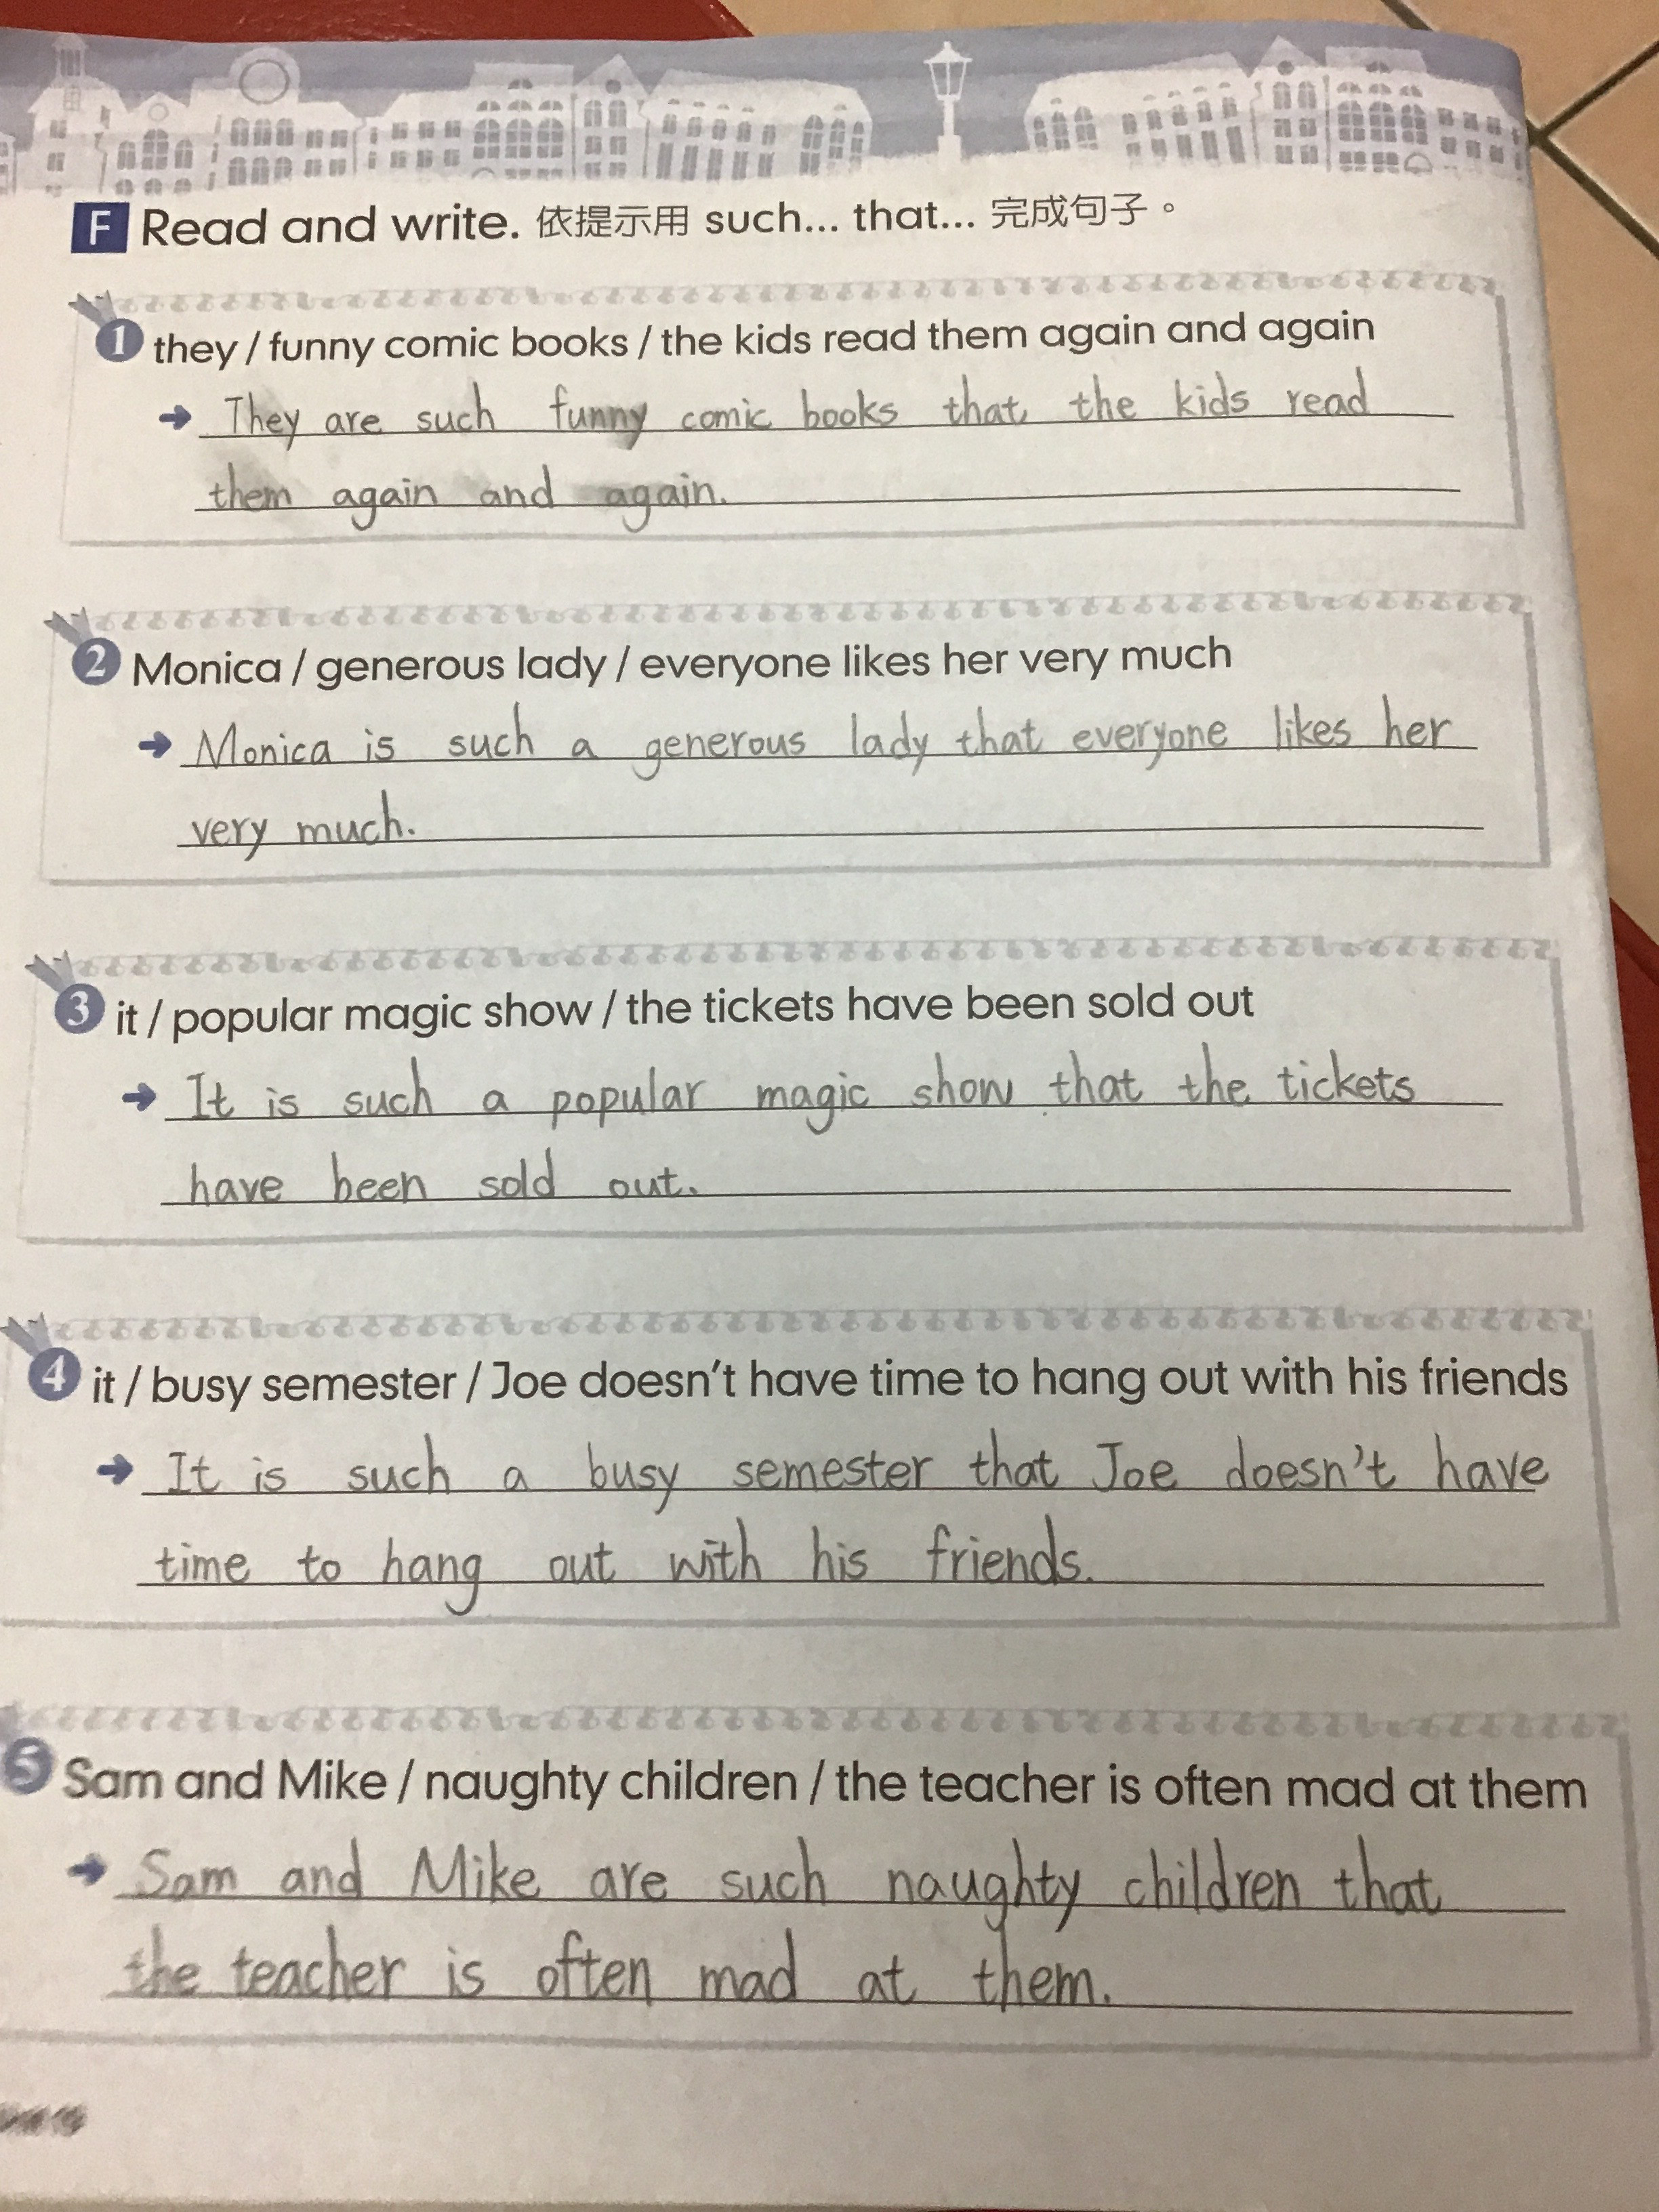 F Read and write. 依提示用 such... that... 完成句子。
1 they / funny comic books / the kids read them again and again
→ They are such funny comic books that the kids read
them again and again.
2 Monica / generous lady / everyone likes her very much
→ Monica is such a generous lady that everyone likes her
very much.
3 it / popular magic show / the tickets have been sold out
→ It is such a popular magic show that the tickets
have been sold out.
4 it / busy semester / Joe doesn't have time to hang out with his friends
→ It is such a busy semester that Joe doesn't have
time to hang out with his friends.
5 Sam and Mike / naughty children / the teacher is often mad at them
→ Sam and Mike are such naughty children that
the teacher is often mad at them.